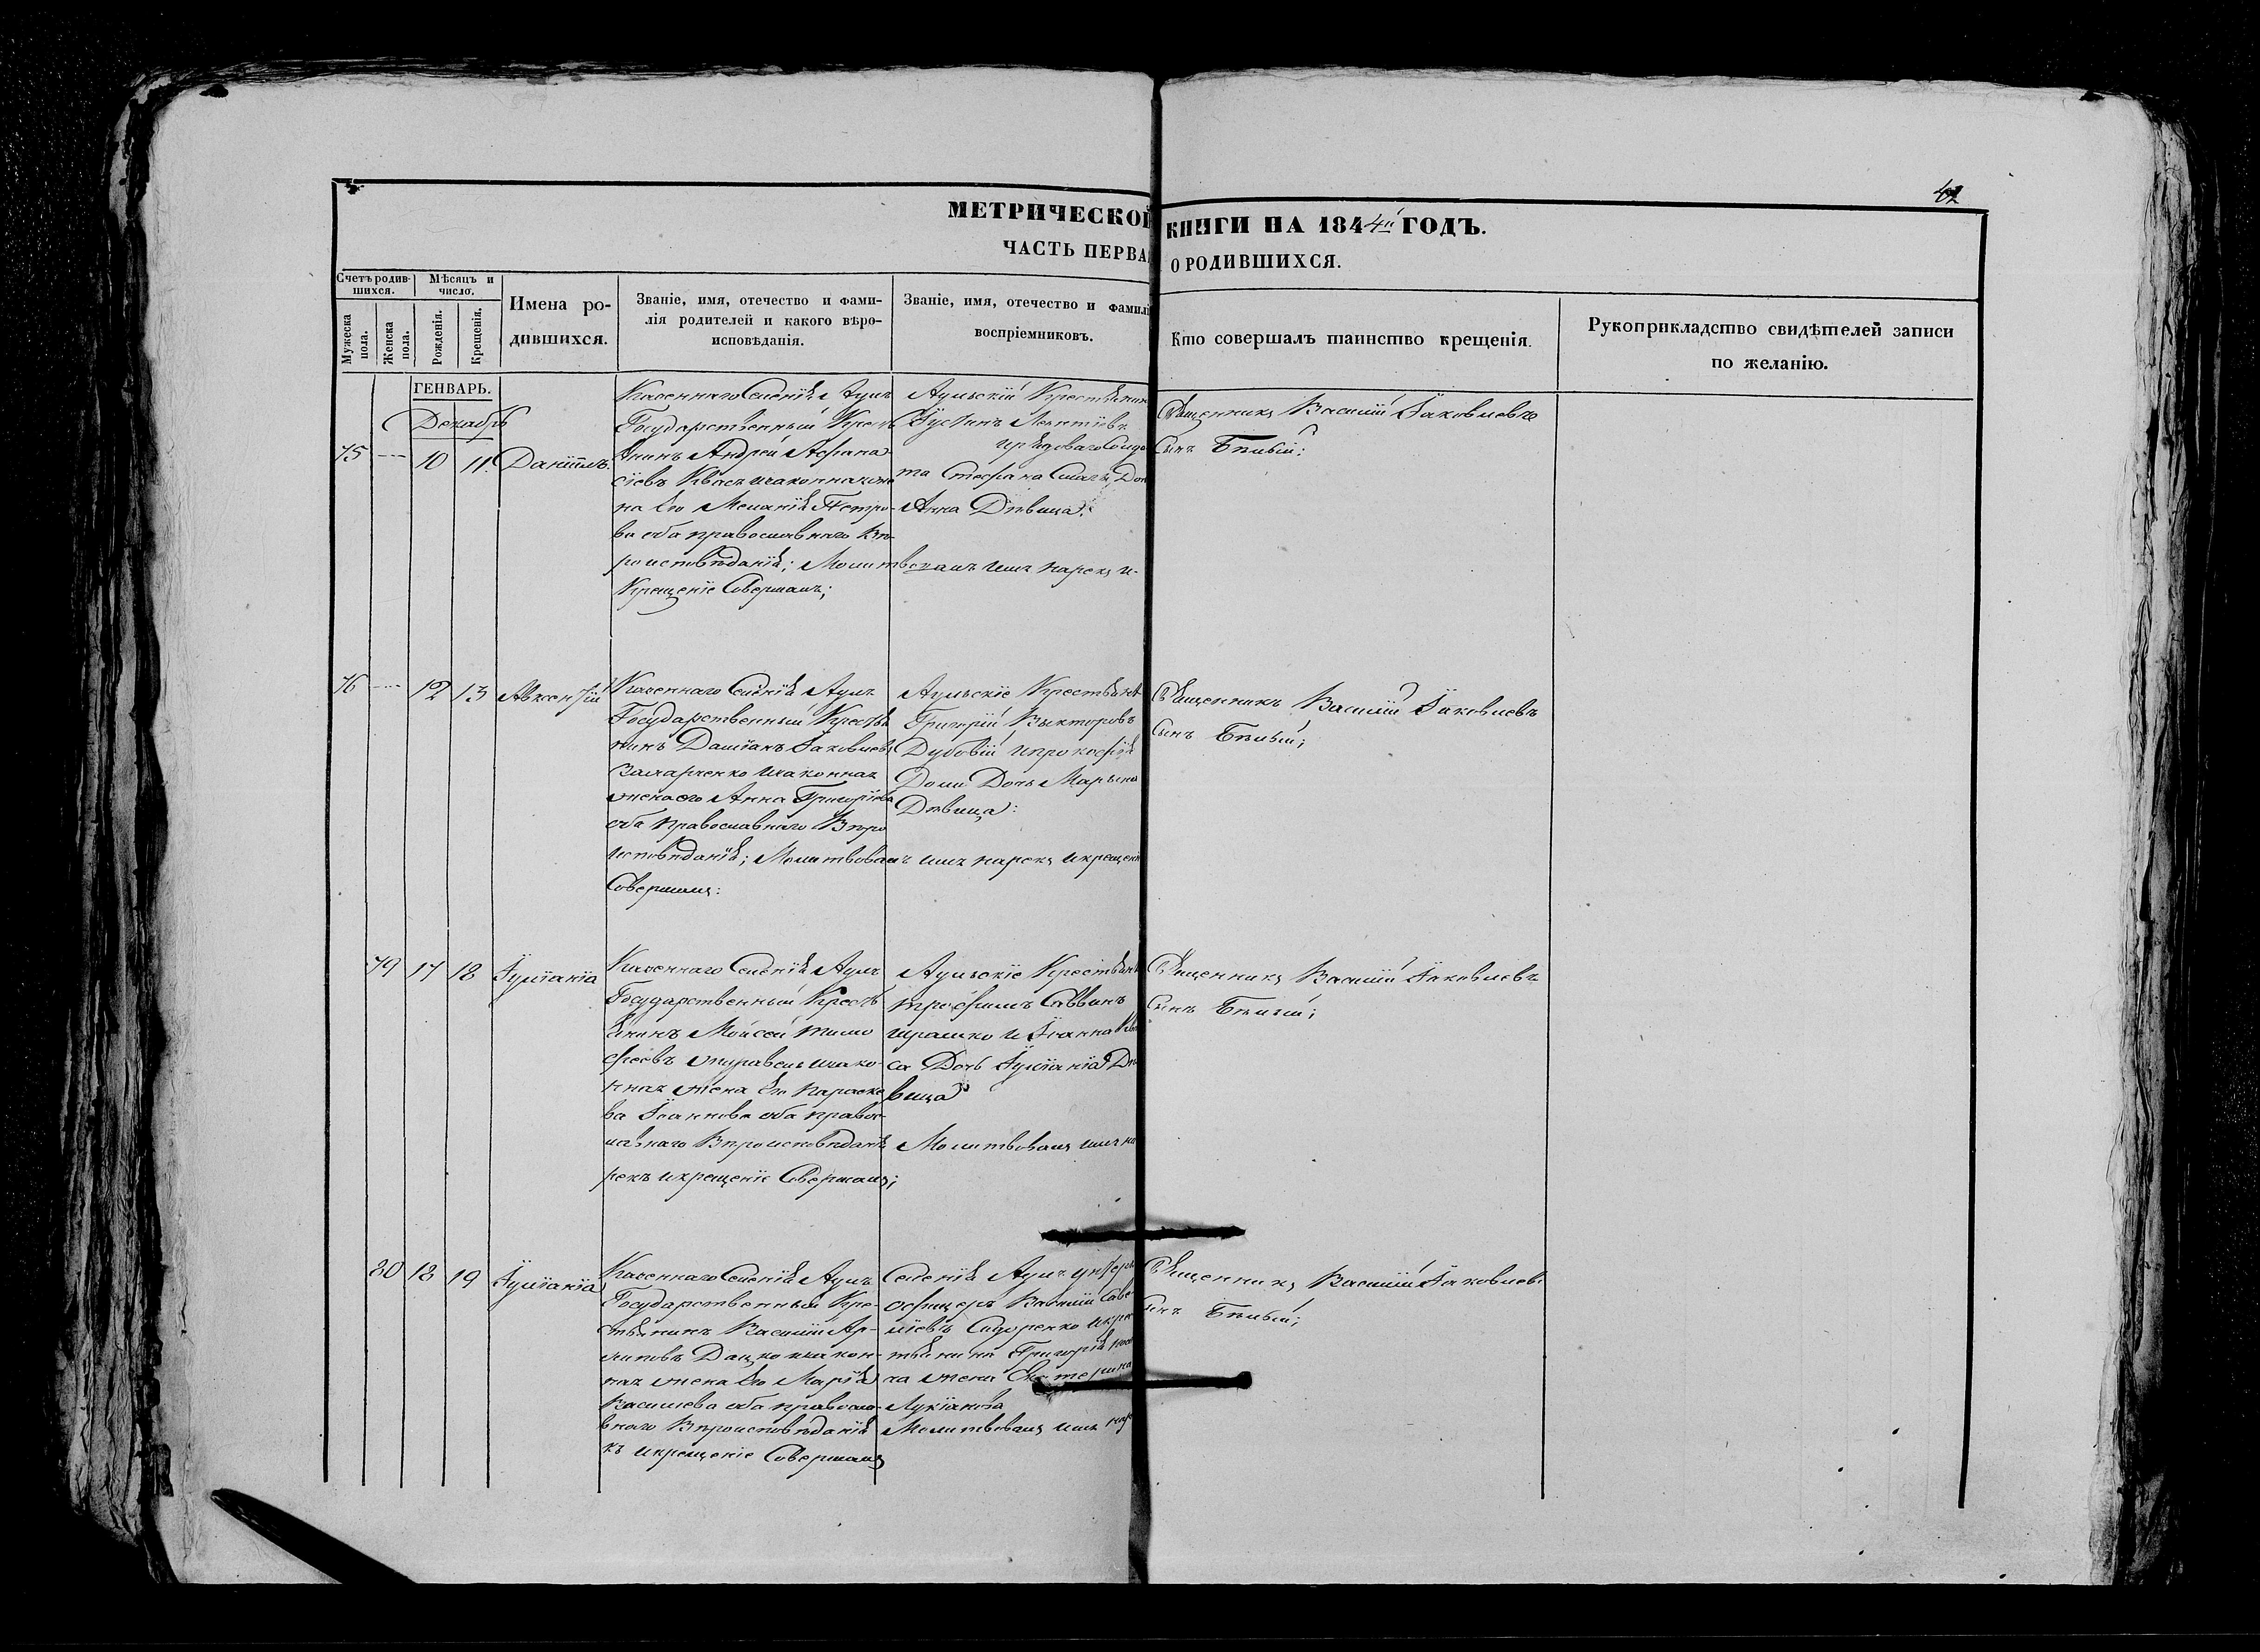 42
МЕТРИЧЕСКОЙ КНИГИ НА 1844й ГОДЪ.
ЧАСТЬ ПЕРВАЯ О РОДИВШИХСЯ.
Счетъ родив-
шихся.
Мужеска
пола.
Женска
пола.
Мѣсяцъ и
число.
Рожденія.
Крещенія.
Имена ро-
дившихся.
Званіе, имя, отечество и фами-
лія родителей и какого вѣро-
исповѣданія.
Званіе, имя, отечество и фамилі
воспріемниковъ.
Кто совершалъ таинство крещенія.
Рукоприкладство свидѣтелей записи
по желанію.
ГЕНВАРЬ.
Декабрь
75 10 11 Даніилъ
Казеннаго Селенія Аулъ
Государственный Крест
янинъ Андрей Афана
сіевъ
на Его Меланія Петро-
ва оба православнаго Вѣ-
роисповѣданія; Молитвовалъ имя нарекъ и
Крещеніе Совершалъ;
Аульскій Крестьянин
Іустинъ Леонтіевъ
та Стефана
Анна Дѣвица;
Священникъ Василій Іаковлевъ
Сынъ Бѣлый;
76 12 13 Авксентій
Казеннаго Селенія Аулъ
Государственный Крестья
нинъ Даміанъ Іаковлевъ
Захарченко изаконная
жена его Анна Григоріева
оба Православнаго Вѣро
исповѣданія; Молитвовалъ имя нарекъ икрещені
Совершалъ:
Аульскіе Крестьяне
Григорій Викторовъ
Дубовій ипрокофія
Доли Дочь Марьяна
Дѣвица:
Священникъ Василій Іаковлевъ
Сынъ Бѣлый;
79 17 18 Іуліанія
Казеннаго Селенія Аулъ
Государственный Кресть
янинъ Мойсей тимо
феевъ изако
нная жена Его Параске
ва Іоаннова оба правос-
лавнаго Вѣроисповѣданія
рекъ икрещеніе Совершалъ;
Аульскіе Крестьян
трофимъ Саввинъ
и Іоанна
са Дочь Іуліанія Дѣ
вица
Молитвовалъ имя на
Священникъ Василій Іаковлевъ
Сынъ Бѣлый;
80 18 19 Іуліанія
Казеннаго Селенія Аулъ
Государственный Кре-
стьянинъ Василій Ар-
хиповъ Дацко изакон-
ная жена Его Марія
Василіева оба правосла-
внаго Вѣроисповѣданія
къ икрещеніе Совершалъ
Селенія Аулъ унтеръ
офицеръ Василій Саве
ліевъ Сидоренко икре
стьянина Григорія
ха жена Екатерина
Лукіанова
Молитвовалъ имя наре
Священникъ Василій Іаковлев
Сынъ Бѣлый;